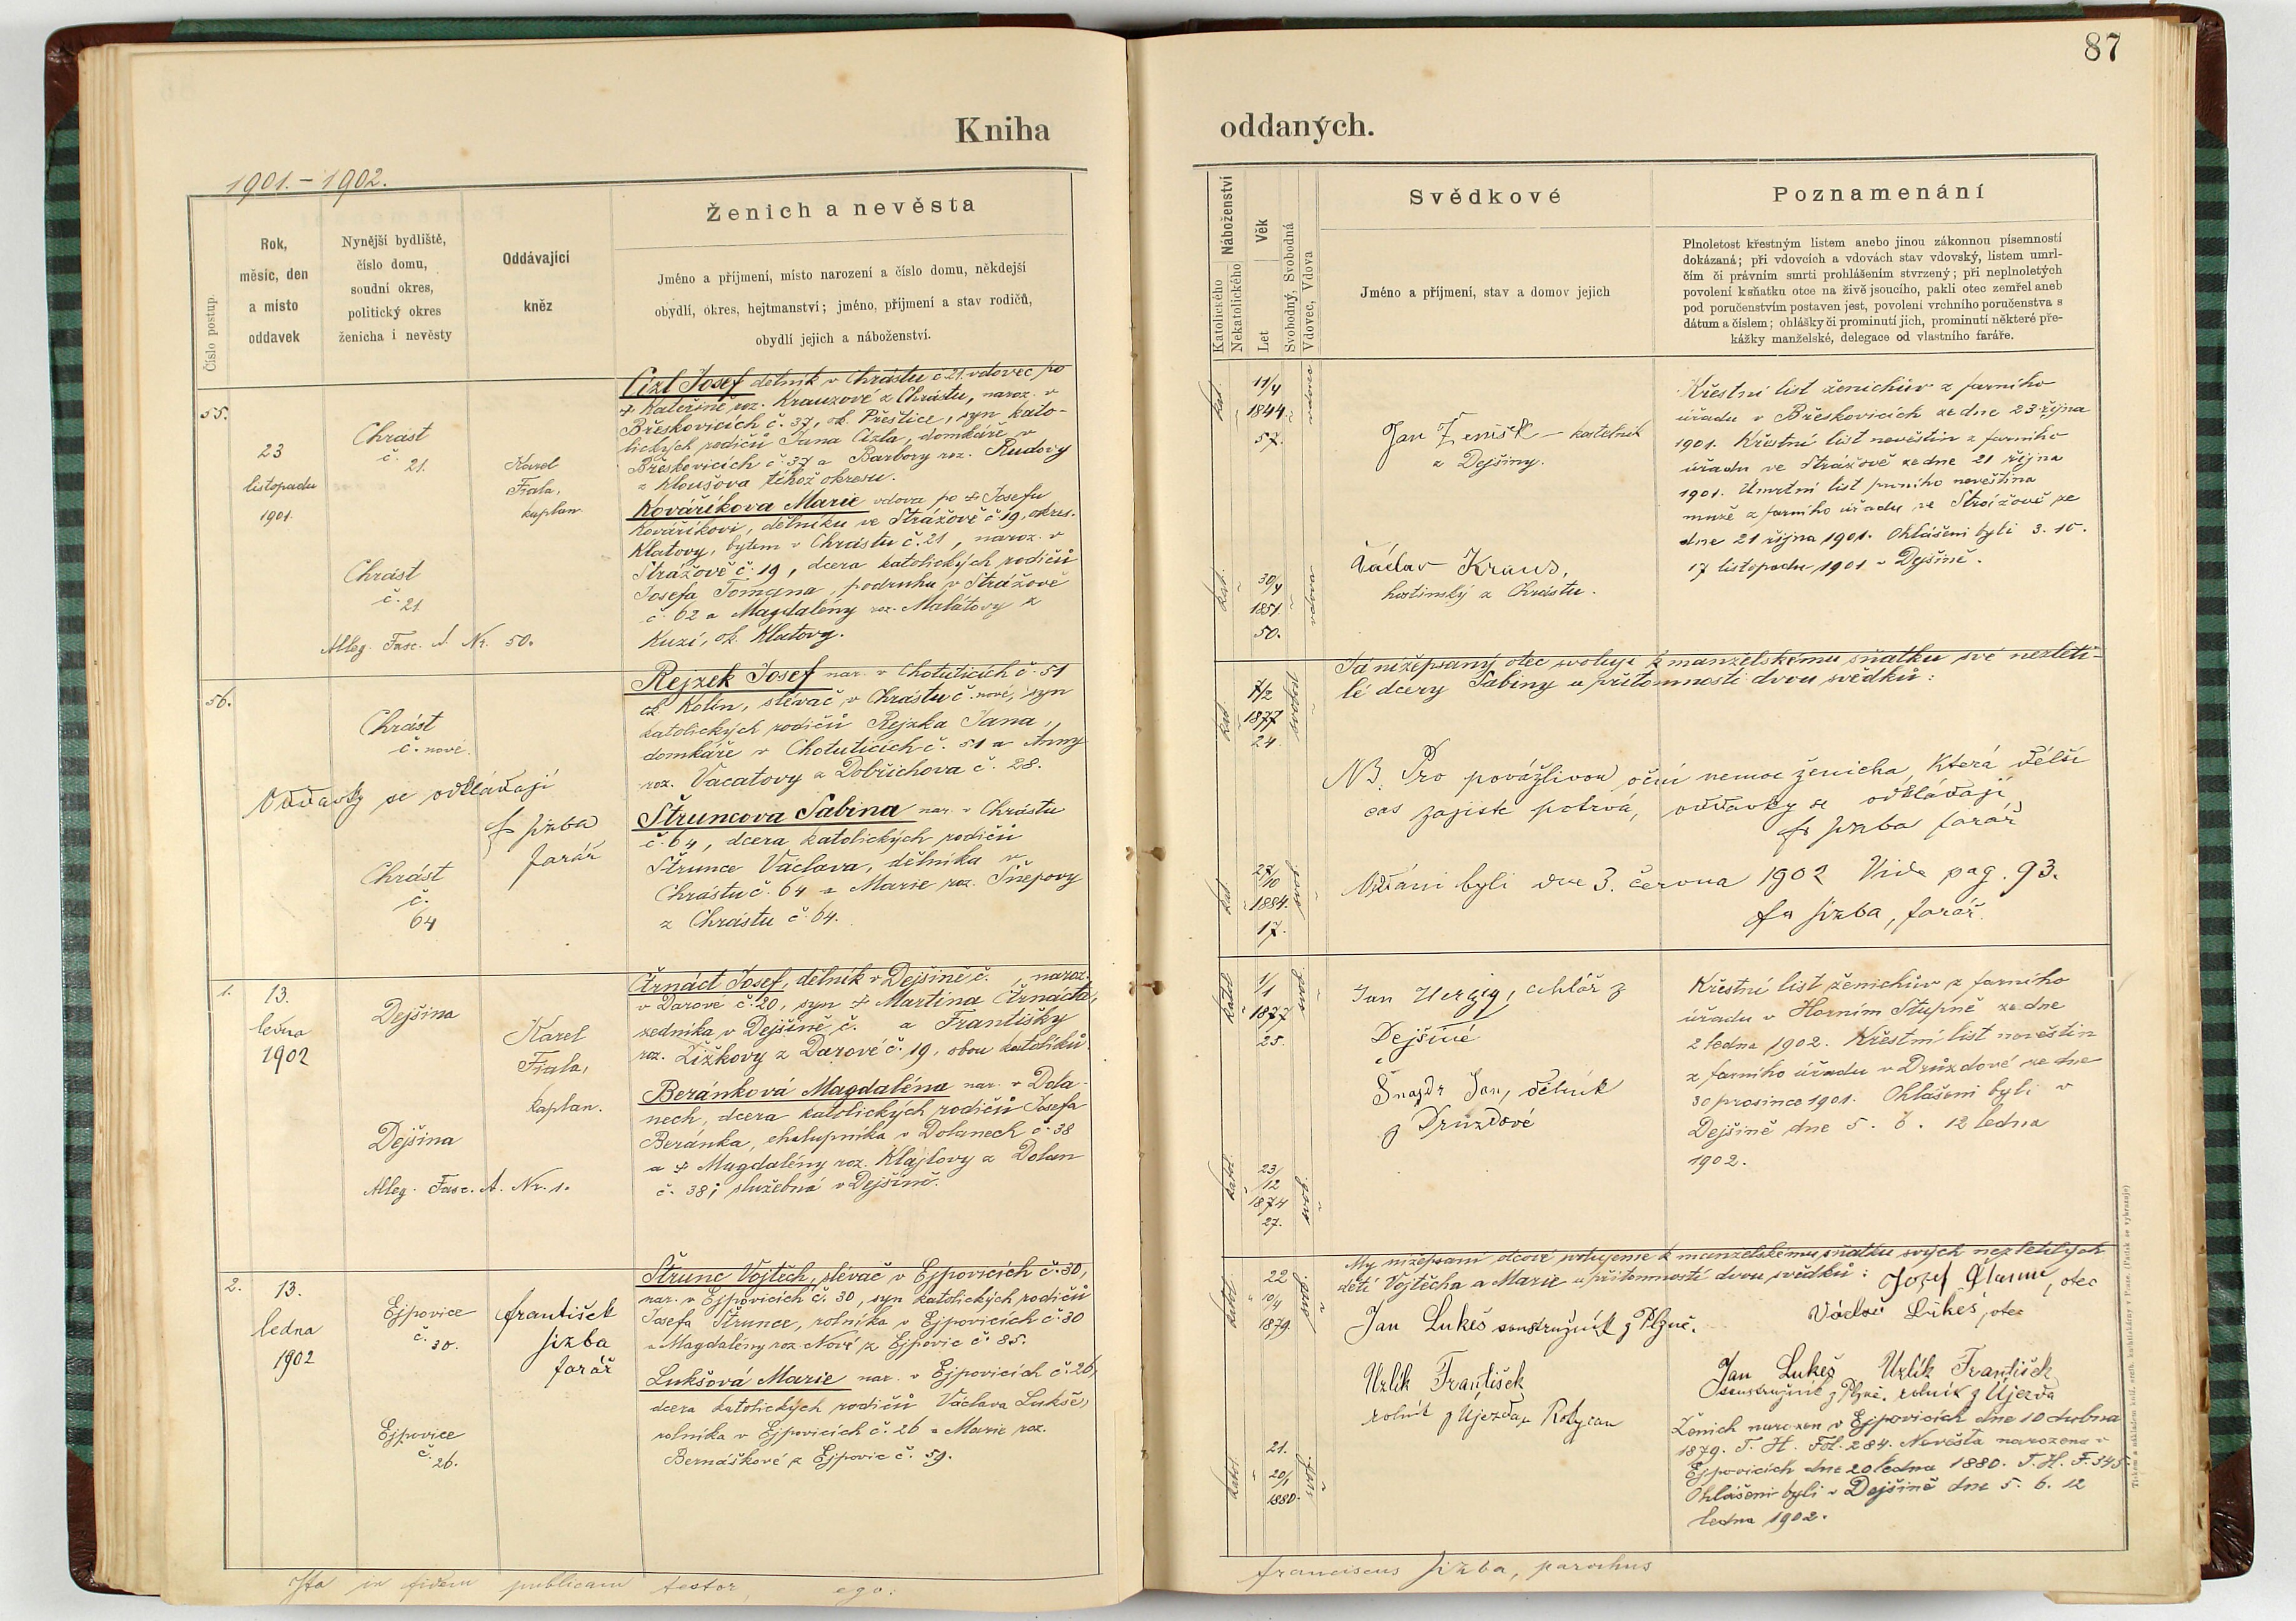 87
Kniha
oddaných.
1901.–1902.
Číslo postup.
Rok,
měsíc, den
a místo
oddavek
Nynější bydliště,
číslo domu,
soudní okres,
politický okres
ženicha i nevěsty
Oddávající
kněz
Ženich a nevěsta
Jméno a příjmení, místo narození a číslo domu, někdejší
obydlí, okres, hejtmanství; jméno, příjmení a stav rodičů,
obydlí jejich a náboženství.
55.
23
listopadu
1901.
Chrást
č. 21.
Chrást
č. 21
Karel
Fiala,
kaplan
Alleg. Fasc. A Nr. 50.
Cizl Josef dělník v Chrástu č 21. vdovec po
† Kateřině roz. Krauzové z Chrástu, naroz. v
Břeskovicích č. 37, ok. Přeštice, syn kato-
lických rodičů Jana Cizla, domkáře v
Břeskovicích č. 37 a Barbory roz. Rudovy
z Kloušova téhož okresu.
Kováříkova Marie vdova po † Josefu
Kováříkovi, dělníku ve Strážově č 19, okres.
Klatovy, bytem v Chrástu č. 21, naroz. v
Strážově č. 19, dcera katolických rodičů
Josefa Tomana, podruha v Strážově
č. 62 a Magdaleny roz. Malátovy z
Kuzí, ok. Klatovy.
56.
Chrást
č. nové.
Oddavky se odkládají
fr Jizba
farář
Chrást
č.
64
Rejzek Josef nar. v Chotuticích č. 51
ok Kolín, slévač, v Chrástu č. nové, syn
katolických rodičů Rejzka Jana,
domkáře v Chotuticích č. 51 a Anny
roz. Vacatovy z Dobřichova č. 28.
Štruncova Sabina nar. v Chrástu
č. 64, dcera katolických rodičů
Štrunce Václava, dělníka v
Chrástu č. 64 a Marie roz. Šnepovy
z Chrástu č. 64.
1.
13.
ledna
1902
Dejšina
Dejšina
Karel
Fiala,
kaplan.
Alleg. Fasc. A. Nr. 1.
Črnáct Josef, dělník v Dejšině č. , naroz.
v Darové č. 20, syn † Martina Črnácta,
zedníka v Dejšině č. a Františky
roz. Žižkovy z Darové č. 19, obou katolíků.
Beránková Magdaléna nar. v Dola-
nech, dcera katolických rodičů Josefa
Beránka, chalupníka v Dolanech č. 38
a † Magdalény roz. Klajlovy z Dolan
č. 38; služebná v Dejšině.
2.
13.
ledna
1902
Ejpovice
č. 30.
Ejpovice
č. 26.
František
Jizba
farář
Štrunc Vojtěch, slévač v Ejpovicích č. 30,
nar. v Ejpovicích č. 30, syn katolických rodičů
Josefa Štrunce, rolníka v Ejpovicích č. 30
a Magdalény roz. Nové z Ejpovic č. 85.
Lukšová Marie nar. v Ejpovicích č. 26,
dcera katolických rodičů Václava Lukše,
rolníka v Ejpovicích č. 26 a Marie roz.
Bernáškové z Ejpovic č. 59.
Ita in fidem publicam testor, ego:
Náboženství
Katolického
Nekatolického
Věk
Let
Svobodný, Svobodná
Vdovec, Vdova
Svědkové
Jméno a příjmení, stav a domov jejich
Poznamenání
Plnoletost křestným listem anebo jinou zákonnou písemností
dokázaná; při vdovcích a vdovách stav vdovský, listem umrl-
čím či právním smrti prohlášením stvrzený; při neplnoletých
povolení k sňatku otce na živě jsoucího, pakli otec zemřel aneb
pod poručenstvím postaven jest, povolení vrchního poručenstva s
dátum a číslem; ohlášky či prominutí jich, prominutí některé pře-
kážky manželské, delegace od vlastního faráře.
kat.
11/4
1844.
57.
vdovec
Jan Ženíšek – kostelník
z Dejšiny.
kat.
30/4
1851.
50.
vdova
Václav Kraus,
hostinský z Chrástu.
Křestní list ženichův z farního
úřadu v Břeskovicích ze dne 23 října
1901. Křestní list nevěstin z farního
úřadu ve Strážově ze dne 21 října
1901. Úmrtní list prvního nevěstina
muže z farního úřadu ve Strážově ze
dne 21 října 1901. Ohlášeni byli 3. 10.
17 listopadu 1901 v Dejšině.
kat.
7/2
1877
24.
svobod.
Já nížepsaný otec svoluji k manželskému sňatku své nezleti-
lé dcery Sabiny u přítomnosti dvou svědků:
NB. Pro povážlivou oční nemoc ženicha, která delší
čas zajisté potrvá, oddavky se odkládají
fr Jizba farář
kat
27/10
1884.
17.
svob.
Oddáni byli dne 3. června 1902 Vide pag. 93.
fr Jizba, farář.
katol.
1/1
1877
25.
svob.
Jan Herzig, cihlář z
Dejšiné
a
Šnajdr Jan, dělník
z Druzdové
katol.
23/12
1874
27.
svob.
Křestní list ženichův z farního
úřadu v Horním Stupně ze dne
2 ledna 1902. Křestní list nevěstin
z farního úřadu v Druzdové ze dne
30 prosince 1901. Ohlášeni byli v
Dejšině dne 5. 6. 12 ledna
1902.
My nížepsaní otcové svolujeme k manželskému sňatku svých nezletilých
dětí Vojtěcha a Marie u přítomnosti dvou svědků: Jozef Štrunc, otec
Václav Lukeš, otec
katol.
22
10/4
1879.
svob.
Jan Lukeš soustružník z Plzně.
Uzlík František
rolník z Újezda u Rokycan
Jan Lukeš Uzlík František
soustružník z Plzně. rolník z Újezda
katol.
21.
20/1
1880.
svob.
Ženich narozen v Ejpovicích dne 10 dubna
1879. T. H. Fol. 284. Nevěsta narozena v
Ejpovicích dne 20 ledna 1880. T. H. F. 345
Ohlášeni byli v Dejšině dne 5. 6. 12
ledna 1902.
franciscus Jizba, parochus